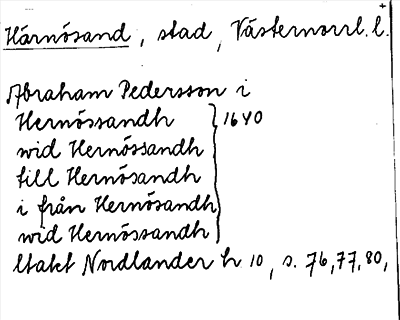 Härnösand, stad, Västernorrl. l.
Abraham Pedersson i
Hernössandh } 1640
wid Hernössandh
till Hernösandh
i från Hernösandh
wid Hernössandh
ltakt Nordlander h 10, s. 76, 77, 80,